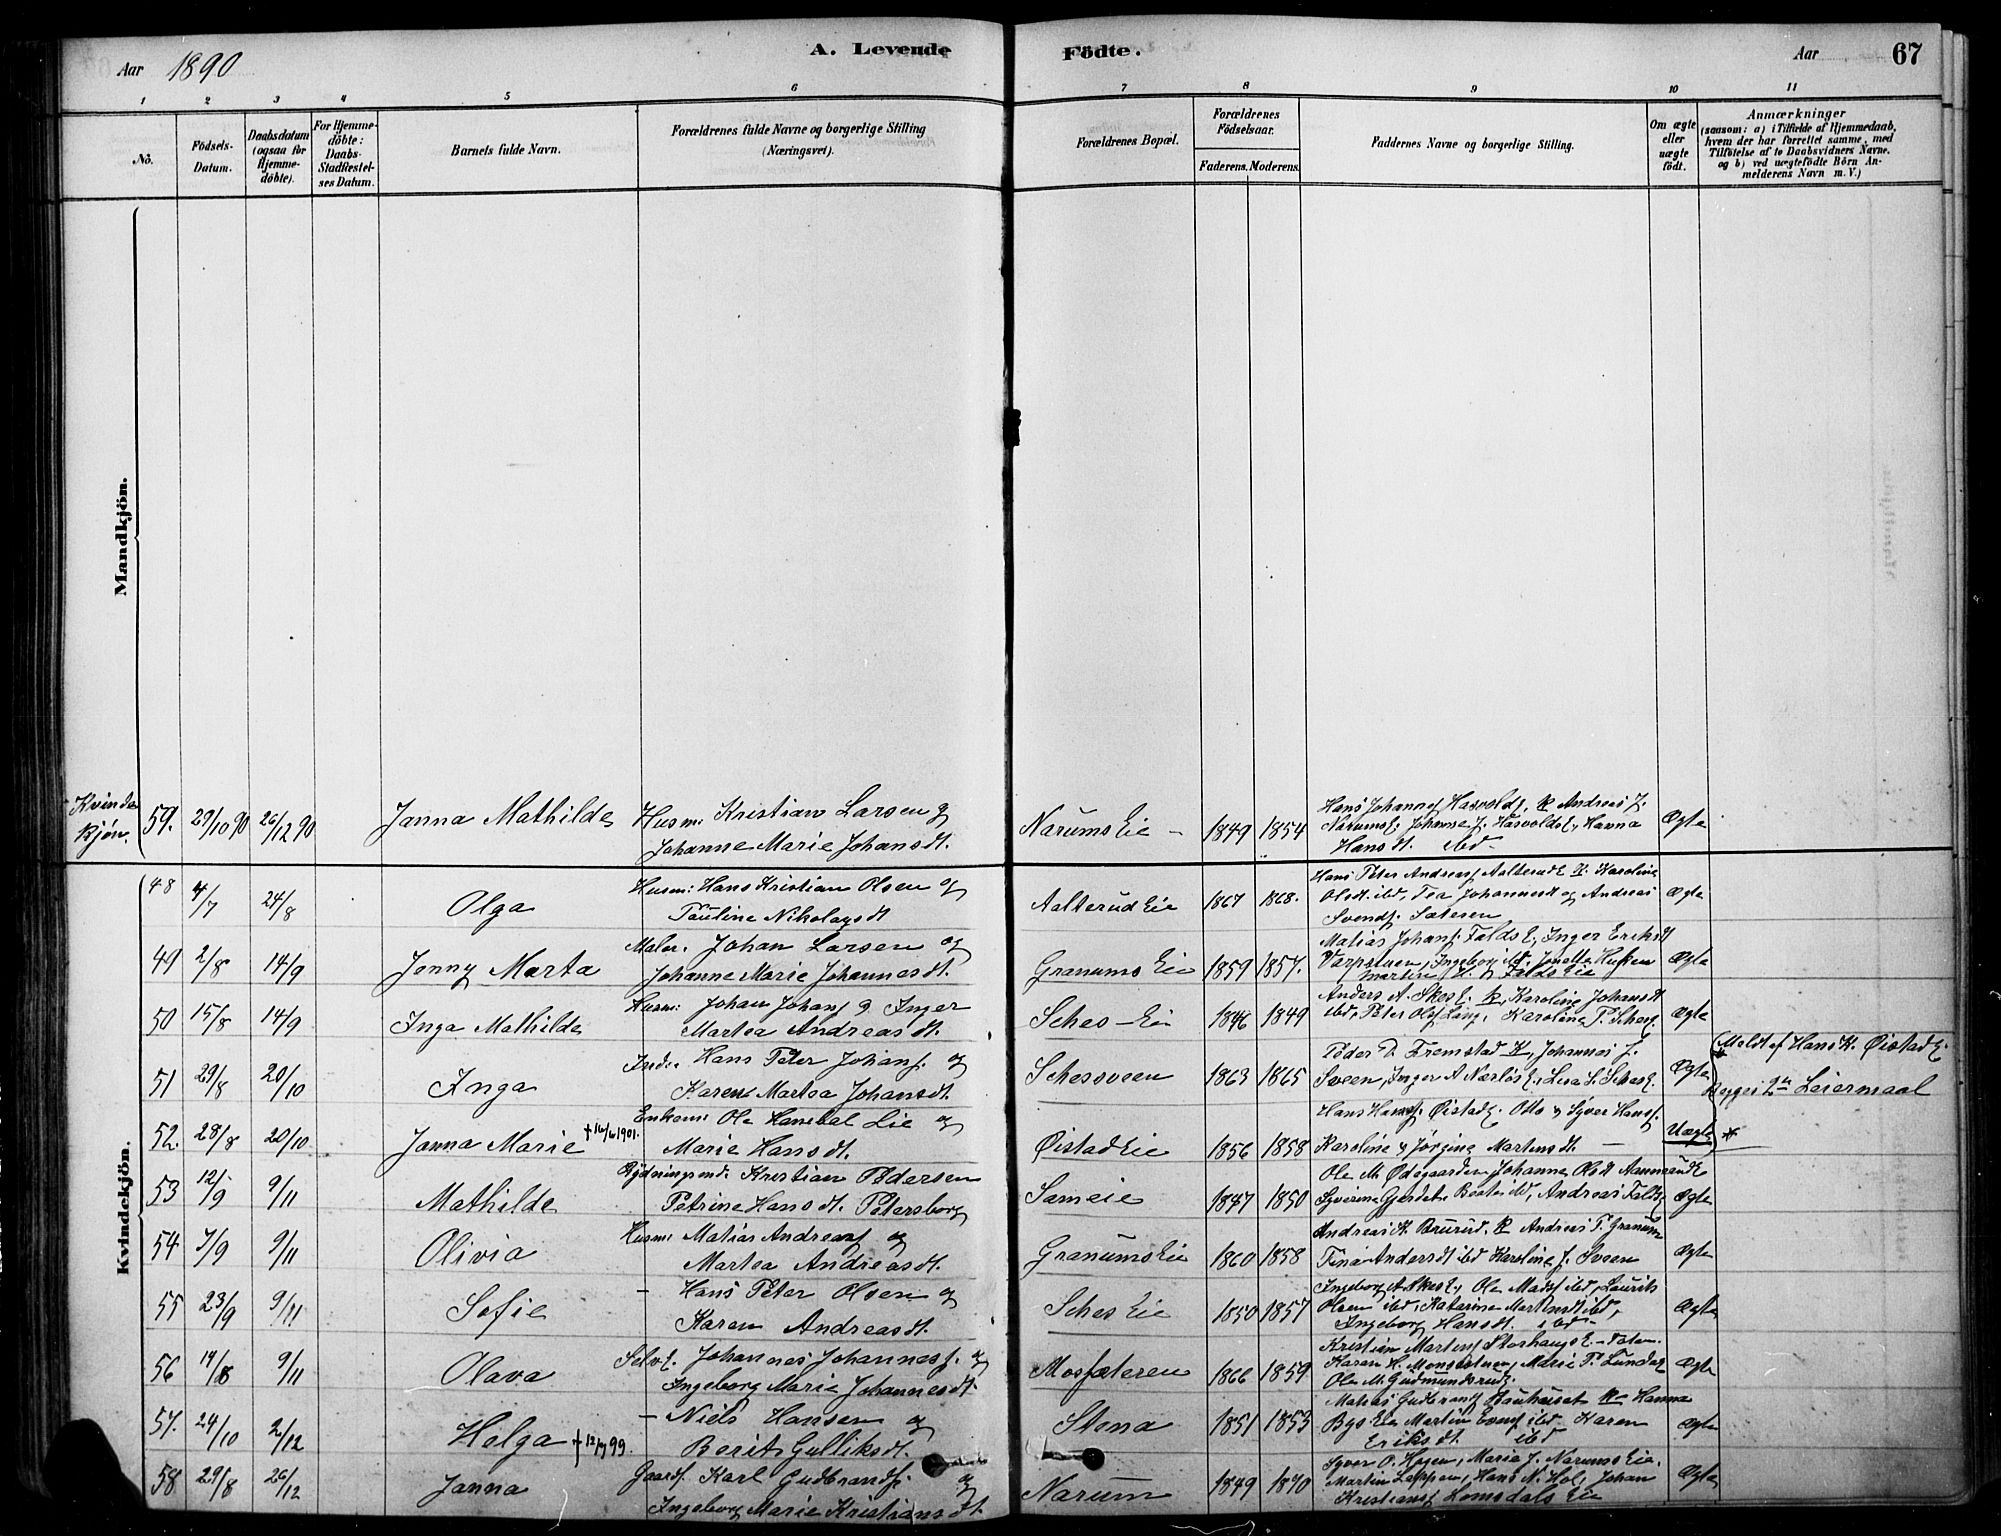 Aar 1890 A. Levende Födte. Aar 67
1 2 3 4 5 6 7 8 9 10 11
No. Födsels-Datum. Daabsdatum (ogsaa for Hjemme-döbte). For Hjemme-döbte: Daabs-Stadfæstel-ses Datum. Barnets fulde Navn. Forældrenes fulde Navne og borgerlige Stilling (Næringsvei). Forældrenes Bopæl. Forældrenes Födselsaar. Faderens. Moderens. Faddernes Navne og borgerlige Stilling. Om ægte eller uægte födt. Anmærkninger (saasom: a) i Tilfælde af Hjemmedaab, hvem der har forrettet samme, med Tilföielse af to Daabsvidners Navne. og b) ved uægtefödte Börn An-melderens Navn m. V.)
Mandkjön.
Kvinde kjön. 59. 29/10 90 26/12 90 Janna Mathilde Husm: Kristian Larsen g Narums Eie – 1849 1854 Hans Johannesf Hasvoldse, K Andreas J. Ægte
Johanne Marie Johansdt. Narumse. Johanne J. Hasvolds E., Hanna
Hansdt. ibd-
Kvindekjön.
48 4/7 24/8 Olga Husm: Hans Kristian Olsen og Aalterud Eie 1867 1868. Hans Peter Andreasf Aalterude K. Karoline Ægte
Pauline Nikolaysdt Olsdt ibd, Tea Johannesdt og Andreas
Svendsf. Sæteren
49 2/8 14/9 Jenny Marta Maler. Johan Larsen og Granums Eie 1859 1857. Matias Johansf. Falds E., Inger Eriksdt Ægte
Johanne Marie Johannesdt. Varpstuen, Ingeborg ibd. Jonette
Martin Falds Eie
50 15/8 14/9 Inga Mathilde Husm: Johan Johansf g Inger Sches-Eie 1846 1849 Anders A. Skes E. K, Karoline Johansdt Ægte
Martea Andreasdt. ibd, Peter Olsf Lang, Karoline P. Schese.
51 29/8 20/10 Inga Inds. Hans Peter Johansf. og Schessveen 1863 1865 Peder D. Fremstad K, Johannes J. Ægte
Karen Martea Johansdt. Sveen, Inger A Nærløs E., Lisa L. Sches E.
52. 28/8 20/10 Janna Marie + 16/6 1901. Enkem: Ole Hanibal Lie og Øistad Eie 1856 1858 Hans Hansf. Øistad E. Otto & Syver Hansf. Uægte *
Marie Hansdt. Karoline & Jørgine Martensdt. –
* Meldt af Hans K. Øistad E.
Begges 2det Leiermaal
53 12/9 9/11 Mathilde Rydningsmd: Kristian Pedersen Sameie 1847 1850 Ole M. Ødegaarden, Johanne Olsdt Aamrud E Ægte
Petrine Hansdt. Petersborg Syverine Gjerdet, Beate ibd, Andreas Falds E
54 7/9 9/11 Olivia Husm: Matias Andreasf og Granums Eie 1860 1858 Andreas K. Brurud, K Andreas T. Granum Ægte
Martea Andreasdt. Tina Andersdt ibd Karoline J. Sveen
55 23/9 9/11 Sofie – Hans Peter Olsen og Sches Eie 1850 1857 Ingeborg A. Skes E., Ole Madsf ibd, Laurits Ægte
Karen Andreasdt. Olsen ibd, Katarine Martinsdt ibd,
Ingeborg Hansdt. ibd-
56 14/8 9/11 Olava Selve. Johannes Johannesf. og Mosfæteren 1866 1859 Kristian Martinsf Storhaugs E. – Ægte
Ingeborg Marie Johannesdt. Karen H. Monsstuen, Marie P. Lunde
Ole M. Gudmundsrud
57. 24/10 2/12 Helga + 12/7 99. – Niels Hansen og Stena 1851 1853 Matias Gudbransf Bauhuset K Hanna Ægte
Berit Gulliksdt. Bys Eie, Martin Evensf ibd Karen
Eriksdt. ibd
58 29/8 26/12 Janna Gaardf. Karl Gudbrandsf. og Narum 1849 1840 Syver O. Hagen, Marie J. Narums Eie. Ægte
Ingeborg Marie Kristiansdt. Martin Leppen, Hans N. Hol, Johan
Kristiansf Lomsdals Eie